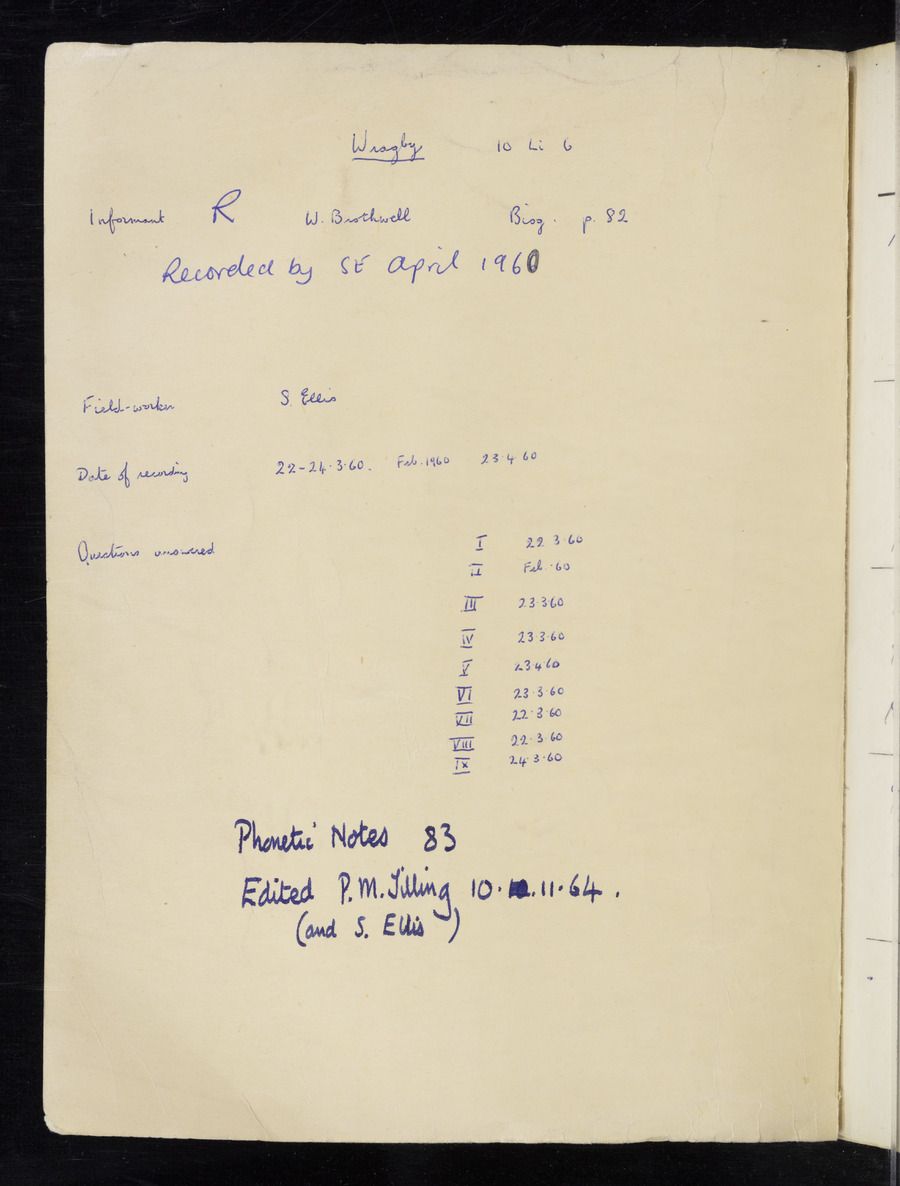 Wragby 10 Li 6
Informant R W. Brothwell Biog. p. 82
Recorded by SE April 1960
Field-worker S. Ellis
Date of recording 22-24.3.60. Feb. 1960 23.4.60
Questions answered I 22.3.60
II Feb.60
III 23.3.60
IV 23.3.60
V 23.4.60
VI 23.3.60
VII 22.3.60
VIII 22.3.60
IX 24.3.60
Phonetic Notes 83
Edited P.M. Tilling 10.11.64.
(and S. Ellis)